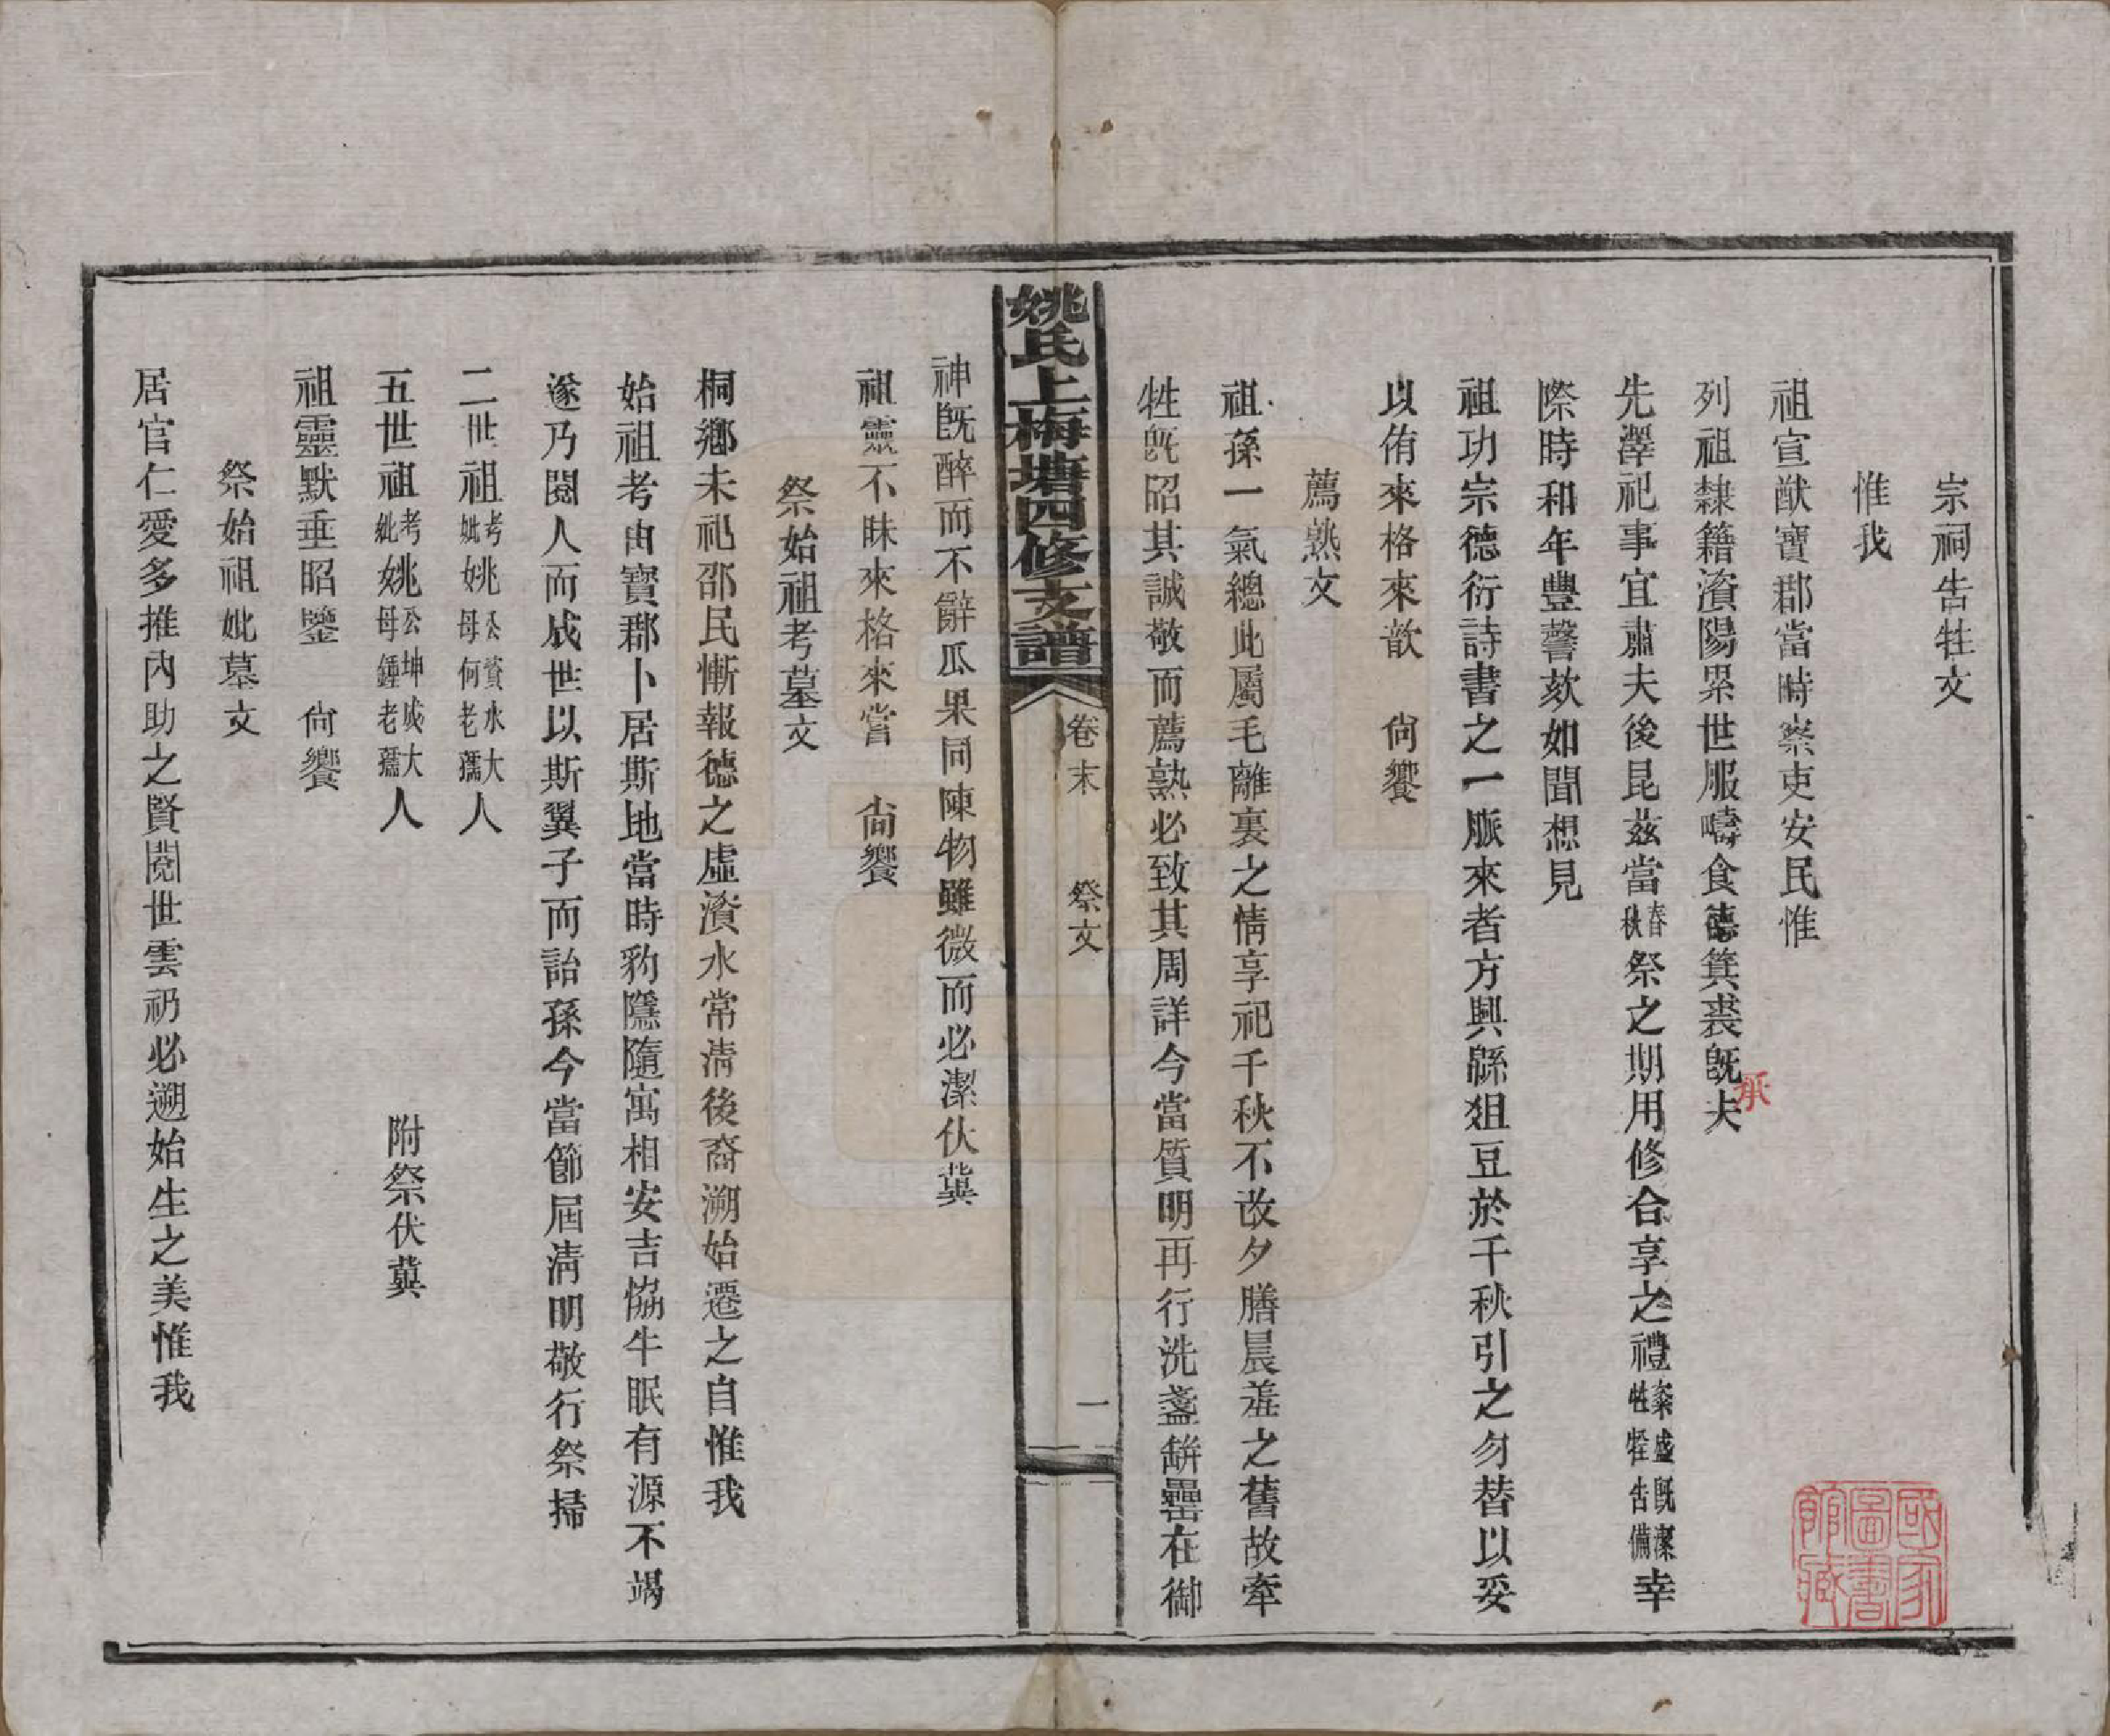 宗祠告牲文
惟我
祖宣猷寶郡當時察吏安民惟
列祖隸籍濱陽累世服疇食德箕裘旣夫
承
先澤祀事宜肅夫後昆茲當春秋祭之期用修合享之禮粢盛旣潔牲牷告備幸
際時和年豐馨欬如聞想見
祖功宗德衍詩書之一脈來者方興緜俎豆於千秋引之勿替以妥
以侑來格來歆　尙饗
薦熟文
祖孫一氣總此屬毛離裏之情享祀千秋不改夕膳晨羞之舊故牽
牲旣昭其誠敬而薦熟必致其周詳今當質明再行洗盞缾罍在御
姚氏上梅塘四修支譜
卷末　祭文
一
神旣醉而不辭瓜果同陳物雖微而必潔伏冀
祖靈不昧來格來嘗　尙饗
祭始祖考墓文
桐鄕未祀邵民慚報德之虛濱水常淸後裔溯始遷之自惟我
始祖考由寶郡卜居斯地當時豹隱隨寓相安吉恊牛眠有源不竭
遂乃閱人而成世以斯翼子而詒孫今當節屆淸明敬行祭掃
二世祖考妣姚公母資何水老大孺人
五世祖考妣姚公母坤鍾成老大孺人　附祭伏冀
祖靈默垂昭鑒　尙饗
祭始祖妣墓文
居官仁愛多推內助之賢閱世雲礽必遡始生之美惟我
國家圖書館藏